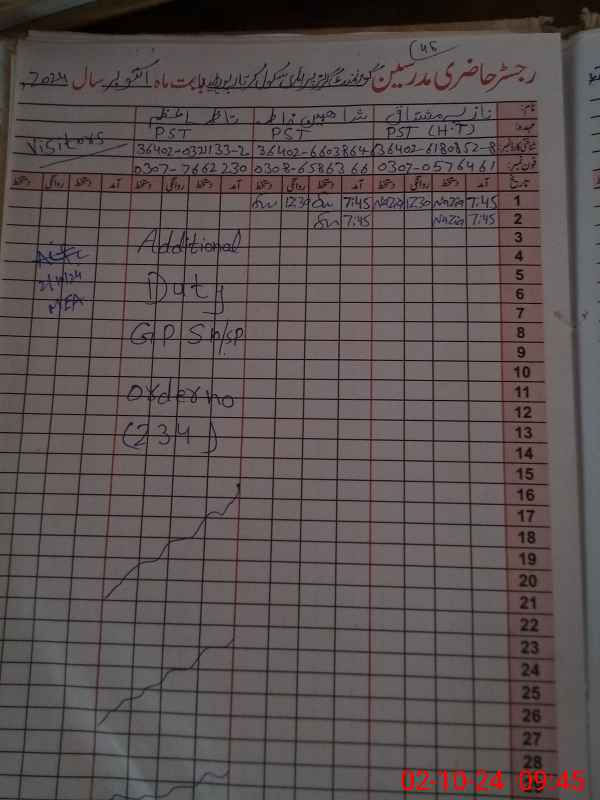 45
رجسٹر حاضری مدرسین گورنمنٹ گرلز پرائمری سکول بابت ماہ اکتوبر سال 2024
نام: نازیہ مشتاق شاہین فاطمہ ناظمہ اعظم
عہدہ: PST (H.T) PST PST Visitors
شناختی کارڈ نمبر: 36402-6180852-8 36402-6603864- 36402-0321133-2
فون نمبر: 0307-0576461 0308-6586366 0307-7662230
تاریخ آمد دستخط روانگی دستخط آمد دستخط روانگی دستخط آمد دستخط روانگی دستخط آمد دستخط روانگی دستخط
1 7:45 Nazia 12:30 Nazia 7:45 12:30
2 7:45 Nazia 7:45
3
4
5
6
7
8
9
10
11
12
13
14
15
16
17
18
19
20
21
22
23
24
25
26
27
28
29
Additional
Duty
GPS
order no
(234)
2/10/24
02-10-24 09:45